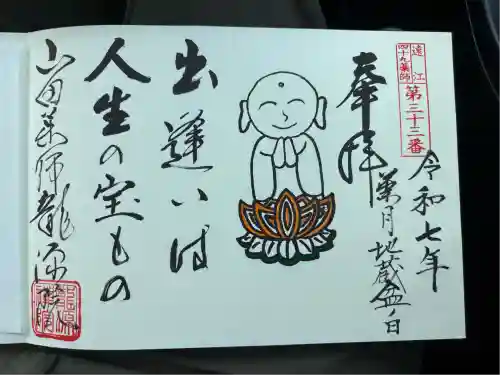 遠江
四十九薬師
第三十三番
奉拝
令和七年
葉月地蔵盆ノ日
出逢いは
人生の宝もの
山田薬師龍源院